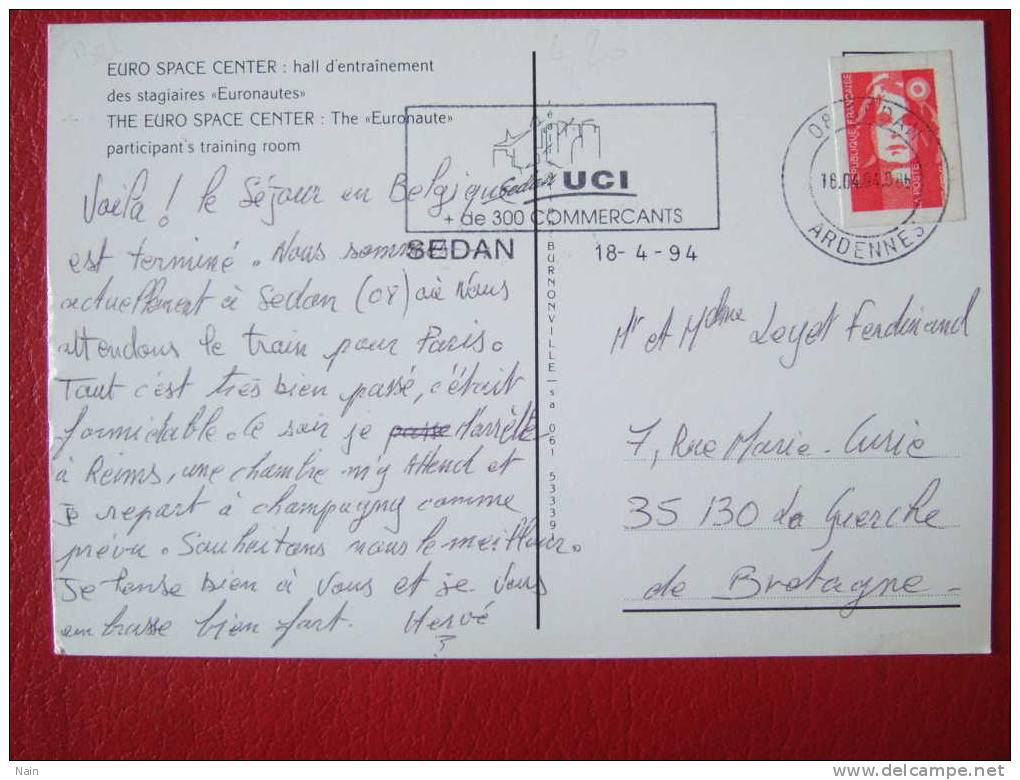 EURO SPACE CENTER : hall d'entraînement
des stagiaires «Euronautes»
THE EURO SPACE CENTER : The «Euronaute»
participant's training room
Voila ! le Séjour en Belgique
est terminé. Nous sommes
actuellement à Sedan (08) où Nous
attendons le train pour Paris.
Tout c'est très bien passé, c'était
formidable. Ce soir je passe M'arrête
à Reims, une chambre m'y Attend et
Je repart à champagny comme
prévu. Souhaitons nous le meilleur.
Je pense bien à Vous et je Vous
embrasse bien fort. Hervé
Sedan UCI
+ de 300 COMMERCANTS
SEDAN 18-4-94
SEDAN
18.04.94
ARDENNES
REPUBLIQUE FRANÇAISE
LA POSTE
BURNONVILLE - sa 061 53339
Mr et Mdme Loyet Ferdinand
7, Rue Marie-Curie
35 130 La Guerche
de Bretagne -
Nain
www.delcampe.net